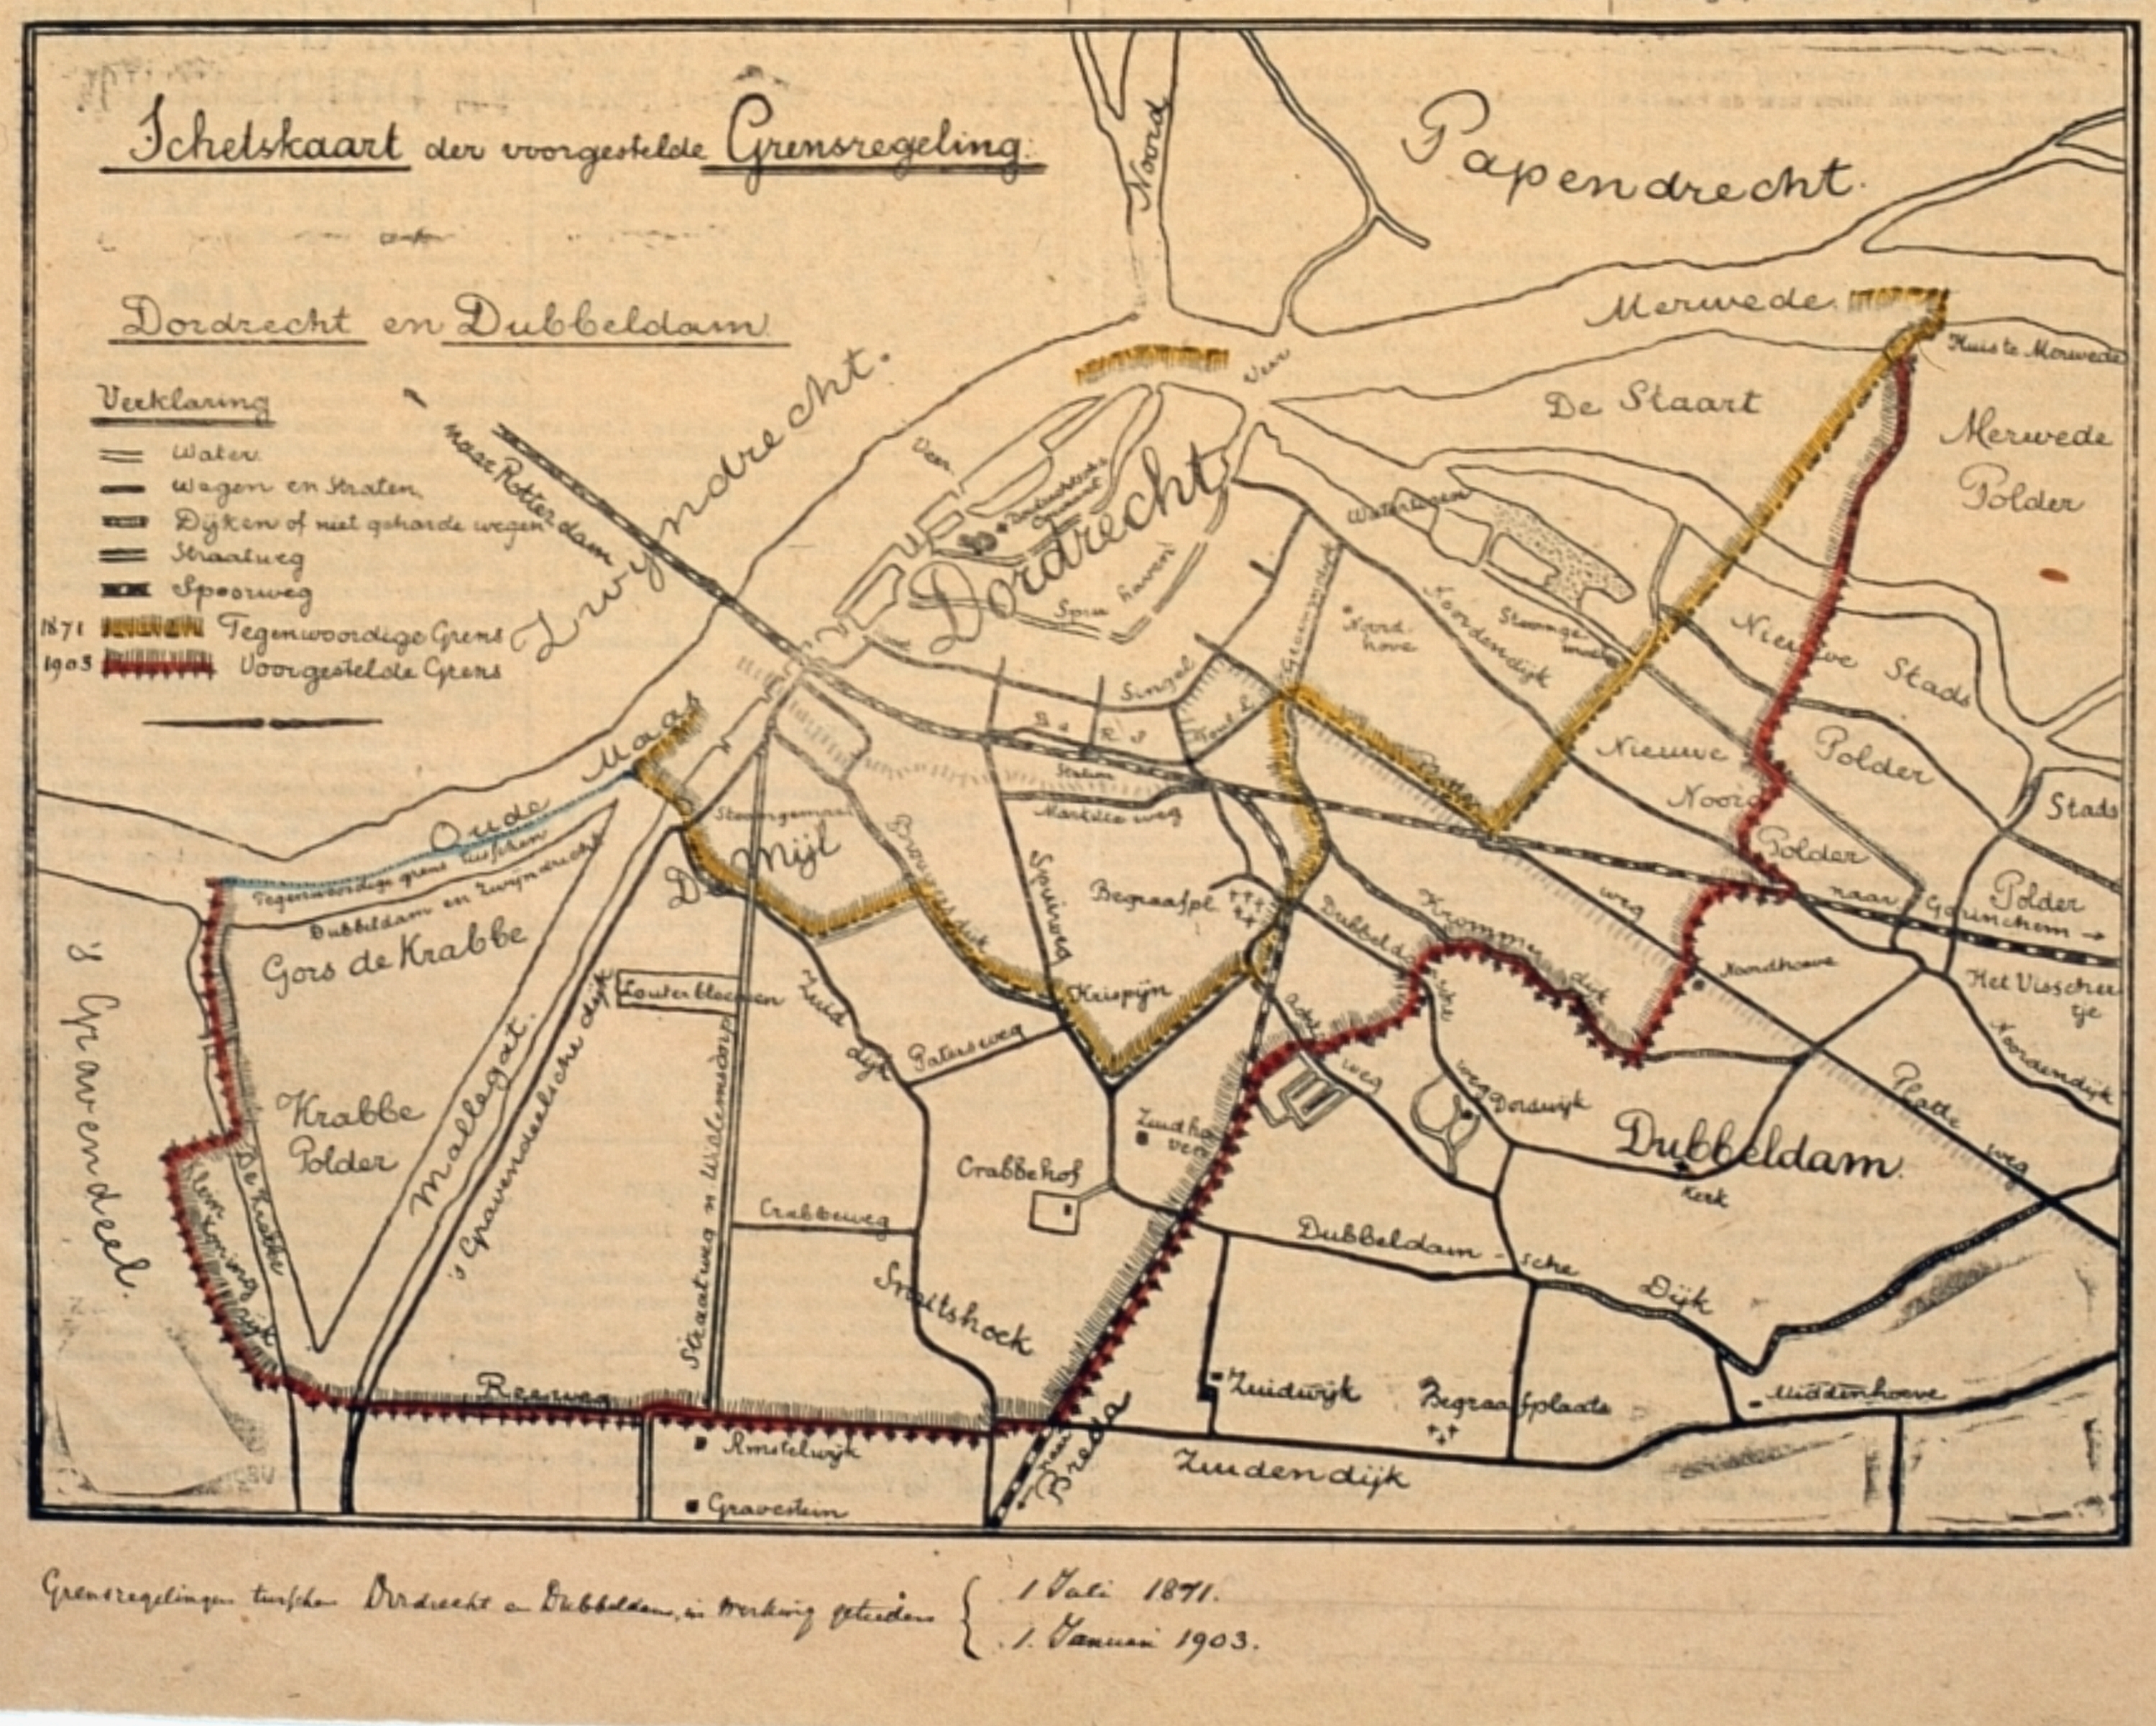 Schetskaart der voorgestelde Grensregeling.
Dordrecht en Dubbeldam
Verklaring
Water.
Wegen en Straten.
Dijken of niet geharde wegen
Straatweg
Spoorweg
1871 Tegenwoordige Grens
1903 Voorgestelde Grens
Noord
Papendrecht.
Merwede.
Huis te Merwede
De Staart
Merwede
Polder
Veer
Veer
naar Rotterdam
Zwijndrecht.
Dordrecht
Spui
haven
Noordendijk
Noord
hove
Singel
Station
Marktteweg
Nieuwe Stads
Polder
Nieuwe
Noord
Polder
Stads
Polder
naar Gorinchem
Oude Maas
Tegenwoordige grens tusschen
Dubbeldam en Zwijndrecht
Gors de Krabbe
Stoomgemaal
De Mijl
Spuiweg
Begraafpl.
Dubbeldam
sche
weg
Krommen
dijk
weg
Noordhoeve
Het Visscher
tje
Noordendijk
's Gravendeel.
Zuid
dijk
Krispijn
Patersweg
Krabbe
Polder
Mallegat.
's Gravendeelsche dijk
De Krabbe
Straatweg n Willemsdorp
Zuidho
ven
Crabbehof
Crabbeweg
Smitshoek
weg
Dordwijk
Dubbeldam.
Kerk
Platte
weg
Dubbeldam-sche
Dijk
Reeweg
Amstelwijk
Gravestein
naar
Breda
Zuidwijk
Begraafplaats
Middenhoeve
Zuidendijk
Grensregelingen tusschen Dordrecht en Dubbeldam, in werking getreden
1 Juli 1871.
1. Januari 1903.